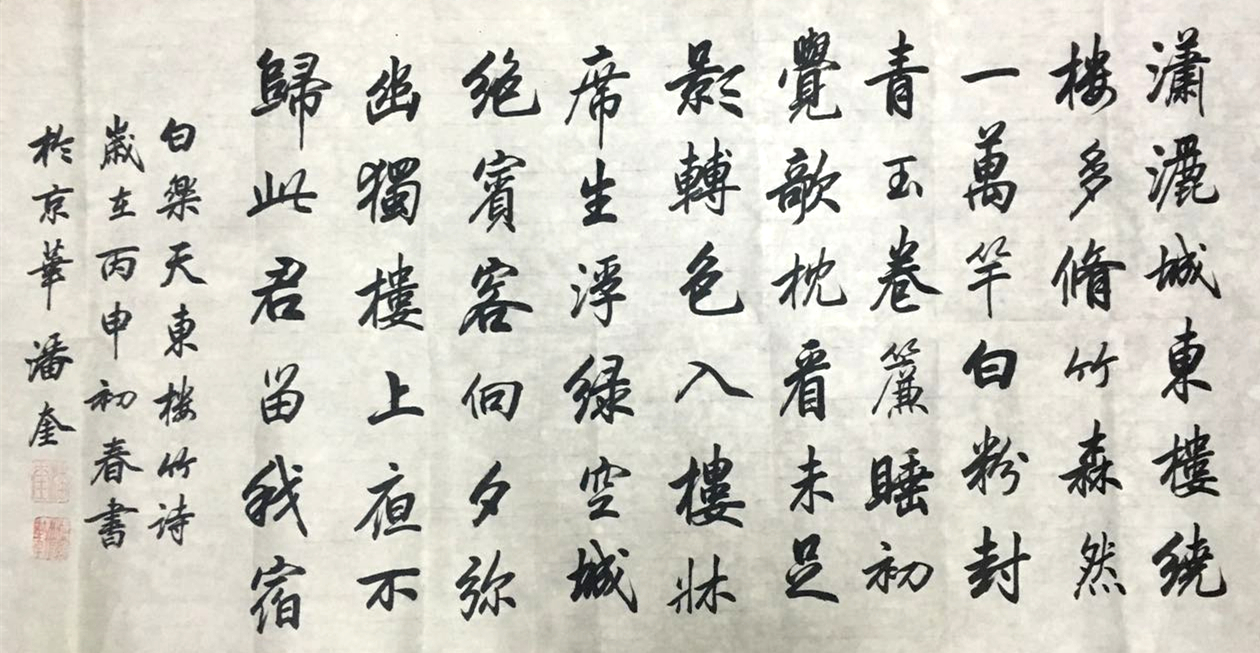 瀟灑城東樓繞
樓多脩竹森然
一萬竿白粉封
青玉卷簾睡初
覺欹枕看未足
影轉色入樓牀
席生浮綠空城
绝賓客向夕弥
幽獨樓上夜不
歸此君留我宿
白樂天東樓竹诗
歲在丙申初春書
於京華潘奎